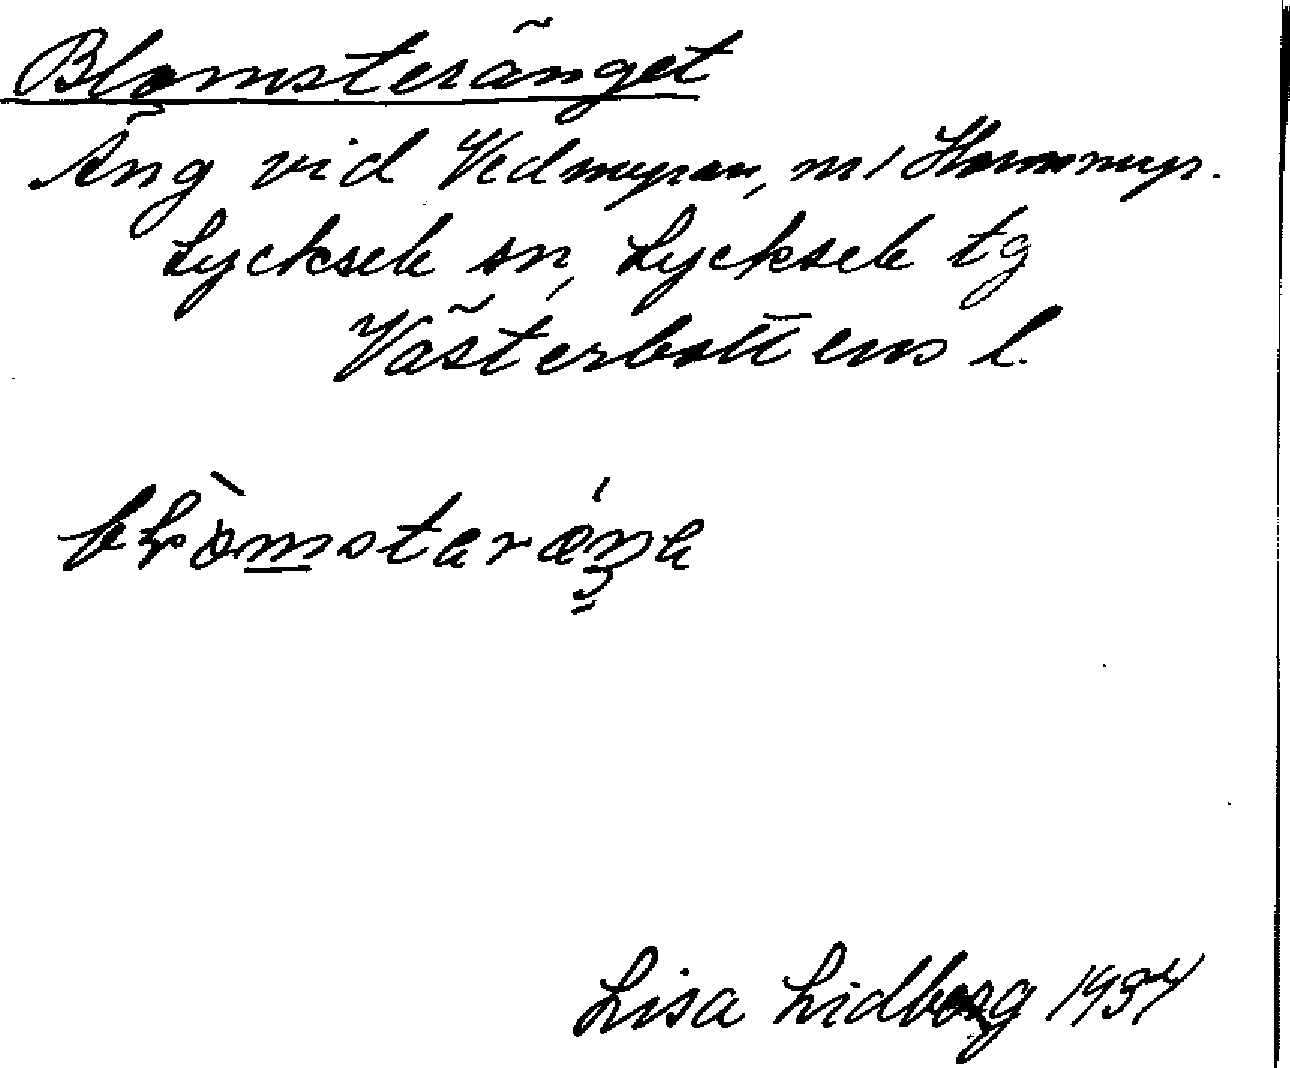 Blomsteränget
Äng vid Vedmyran, n/ Hornmyr.
Lycksele sn, Lycksele tg
Västerbottens l.
Lisa Lidberg 1934